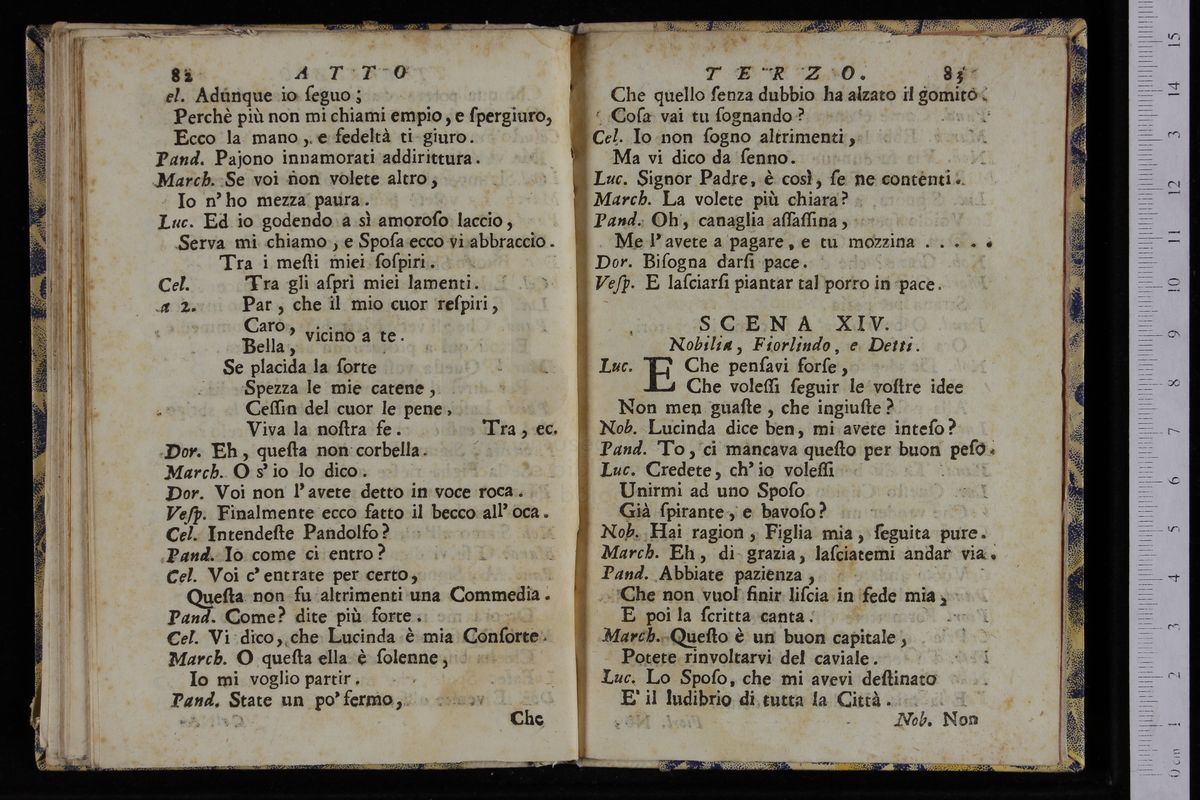 82 ATTO
el. Adunque io ſeguo;
Perchè più non mi chiami empio, e ſpergiuro,
Ecco la mano, e fedeltà ti giuro.
Pand. Pajono innamorati addirittura.
March. Se voi non volete altro,
Io n'ho mezza paura.
Luc. Ed io godendo a sì amoroſo laccio,
Serva mi chiamo, e Spoſa ecco vi abbraccio.
Tra i meſti miei ſoſpiri.
Cel. Tra gli aſpri miei lamenti.
a 2. Par, che il mio cuor reſpiri,
Caro, vicino a te.
Bella,
Se placida la ſorte
Spezza le mie catene,
Ceſſin del cuor le pene,
Viva la noſtra fe. Tra, ec.
Dor. Eh, queſta non corbella.
March. O s'io lo dico.
Dor. Voi non l'avete detto in voce roca.
Veſp. Finalmente ecco fatto il becco all'oca.
Cel. Intendeſte Pandolfo?
Pand. Io come ci entro?
Cel. Voi c'entrate per certo,
Queſta non fu altrimenti una Commedia.
Pand. Come? dite più forte.
Cel. Vi dico, che Lucinda è mia Conſorte.
March. O queſta ella è ſolenne,
Io mi voglio partir.
Pand. State un po' fermo,
Che
TERZO. 83
Che quello ſenza dubbio ha alzato il gomito.
Coſa vai tu ſognando?
Cel. Io non ſogno altrimenti,
Ma vi dico da ſenno.
Luc. Signor Padre, è così, ſe ne contenti.
March. La volete più chiara?
Pand. Oh, canaglia aſſaſſina,
Me l'avete a pagare, e tu mozzina . . . . .
Dor. Biſogna darſi pace.
Veſp. E laſciarſi piantar tal porro in pace.
SCENA XIV.
Nobilia, Fiorlindo, e Detti.
Luc. E Che penſavi forſe,
Che voleſſi ſeguir le voſtre idee
Non men guaſte, che ingiuſte?
Nob. Lucinda dice ben, mi avete inteſo?
Pand. To, ci mancava queſto per buon peſo.
Luc. Credete, ch'io voleſſi
Unirmi ad uno Spoſo
Già ſpirante, e bavoſo?
Nob. Hai ragion, Figlia mia, ſeguita pure.
March. Eh, di grazia, laſciatemi andar via.
Pand. Abbiate pazienza,
Che non vuol finir liſcia in fede mia,
E poi la ſcritta canta.
March. Queſto è un buon capitale,
Potete rinvoltarvi del caviale.
Luc. Lo Spoſo, che mi avevi deſtinato
E' il ludibrio di tutta la Città.
Nob. Non
0 cm 1 2 3 4 5 6 7 8 9 10 11 12 13 14 15